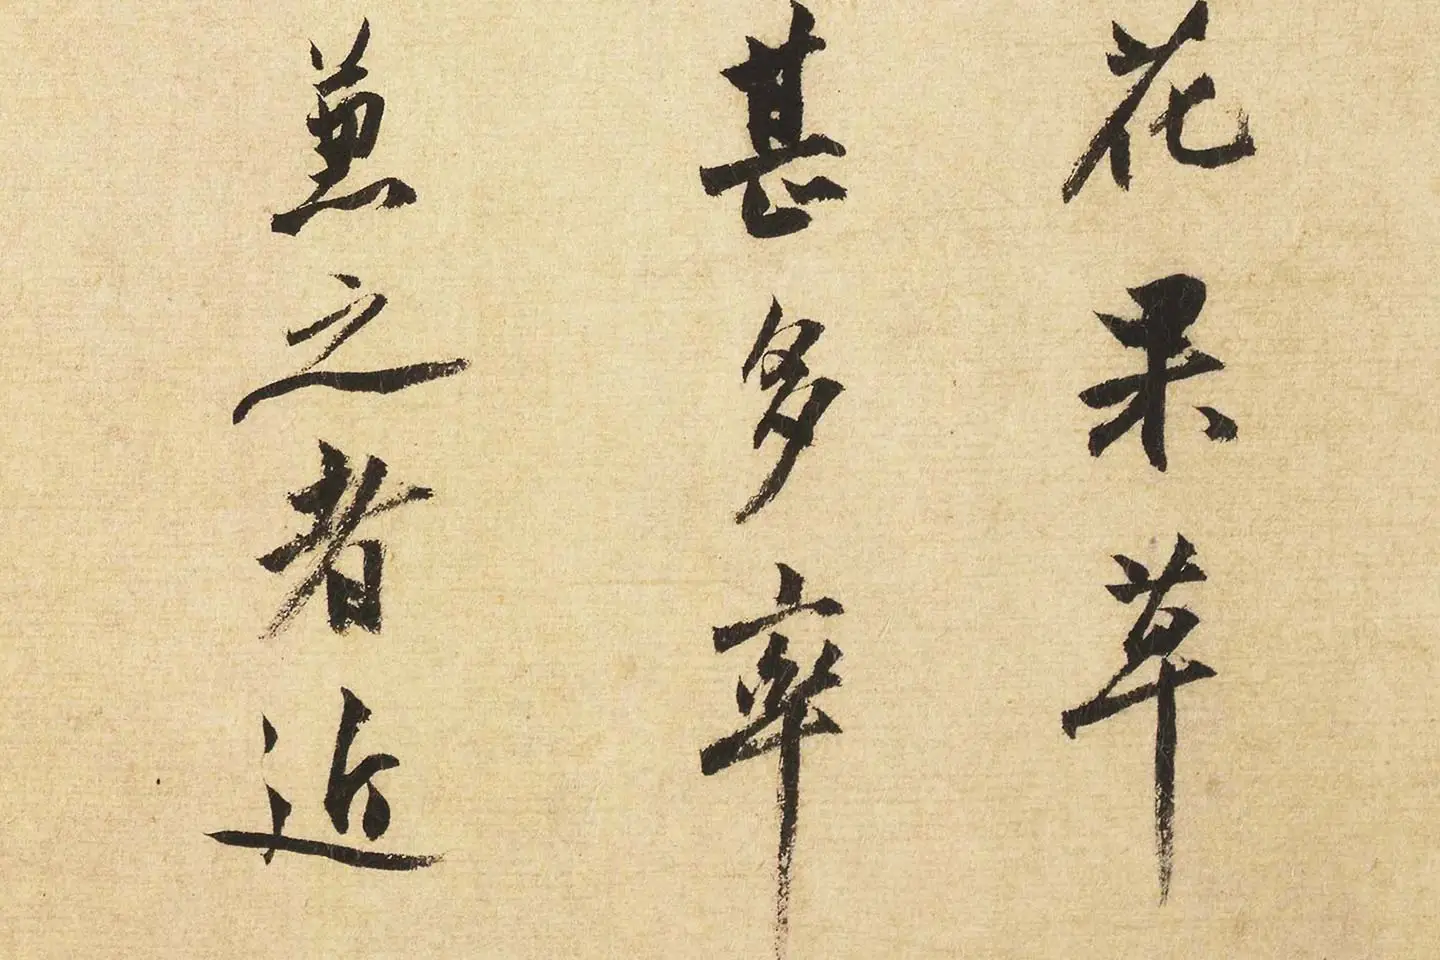 花果草
甚多率
兼之者近